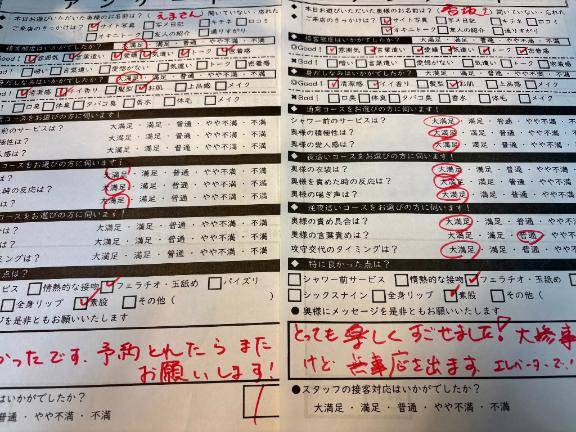 アンケ
本日お遊びいただいた奥様のお名前は？（えまさん）聞いていない・忘れた
ご来店のきっかけは？ サイト写真 写メ日記 キテネ 口コミ
オキニトーク 友人の紹介 通りすがり
接客態度はいかがでしたか？ 大満足 満足 普通 やや不満 不満
Good！ 雰囲気 言葉遣い 愛嬌 気遣い トーク 密着感
Bad！ 暗い 言葉遣い 愛想がない 気遣い トーク 密着感
身だしなみはいかがでしたか？ 大満足 満足 普通 やや不満 不満
Good！ 清潔感 イイ香り 髪型 お肌 上品感 メイク
Bad！ 口臭 体臭 タバコ臭 香水 体毛 メイク
通常コースをお選びの方に伺います！
シャワー前のサービスは？ 大満足・満足・普通・やや不満・不満
積極性は？ 大満足・満足・普通・やや不満・不満
人感は？ 大満足・満足・普通・やや不満・不満
コースをお選びの方に伺います！
大満足・満足・普通・やや不満・不満
た時の反応は？ 大満足・満足・普通・やや不満・不満
は？ 大満足・満足・普通・やや不満・不満
コースをお選びの方に伺います！
は？ 大満足・満足・普通・やや不満・不満
は？ 大満足・満足・普通・やや不満・不満
ミングは？ 大満足・満足・普通・やや不満・不満
点は？
ービス 情熱的な接吻 フェラチオ・玉舐め パイズリ
ン 全身リップ 素股 その他（ ）
ジを是非ともお願いいたします
かったです、予約とれたら また
お願いします！
はいかがでしたか？
普通・やや不満・不満
本日お遊びいただいた奥様のお名前は？ 聞いていない・忘れた
ご来店のきっかけは？ サイト写真 写メ日記 キテネ 口コミ
オキニトーク 友人の紹介 通りすがり
接客態度はいかがでしたか？ 大満足 満足 普通 やや不満 不満
Good！ 雰囲気 言葉遣い 愛嬌 気遣い トーク 密着感
Bad！ 暗い 言葉遣い 愛想がない 気遣い トーク 密着感
◆身だしなみはいかがでしたか？ 大満足 満足 普通 やや不満 不満
Good！ 清潔感 イイ香り 髪型 お肌 上品感 メイク
Bad！ 口臭 体臭 タバコ臭 香水 体毛 メイク
◆通常コースをお選びの方に伺います！
シャワー前のサービスは？ 大満足・満足・普通・やや不満・不満
奥様の積極性は？ 大満足・満足・普通・やや不満・不満
奥様の愛人感は？ 大満足・満足・普通・やや不満・不満
◆夜這いコースをお選びの方に伺います！
奥様の衣装は？ 大満足・満足・普通・やや不満・不満
奥様を責めた時の反応は？ 大満足・満足・普通・やや不満・不満
奥様の喘ぎ声は？ 大満足・満足・普通・やや不満・不満
◆逆夜這いコースをお選びの方に伺います！
奥様の責め具合は？ 大満足・満足・普通・やや不満
奥様の言葉責めは？ 大満足・満足・普通・やや不満
攻守交代のタイミングは？ 大満足・満足・普通・やや不満
◆特に良かった点は？
シャワー前サービス 情熱的な接吻 フェラチオ・玉舐め
シックスナイン 全身リップ 素股 その他（
●奥様にメッセージを是非ともお願いいたします
とっても楽しくすごせました！
けど
●スタッフの接客対応はいかがでしたか？
大満足・満足・普通・やや不満・不満